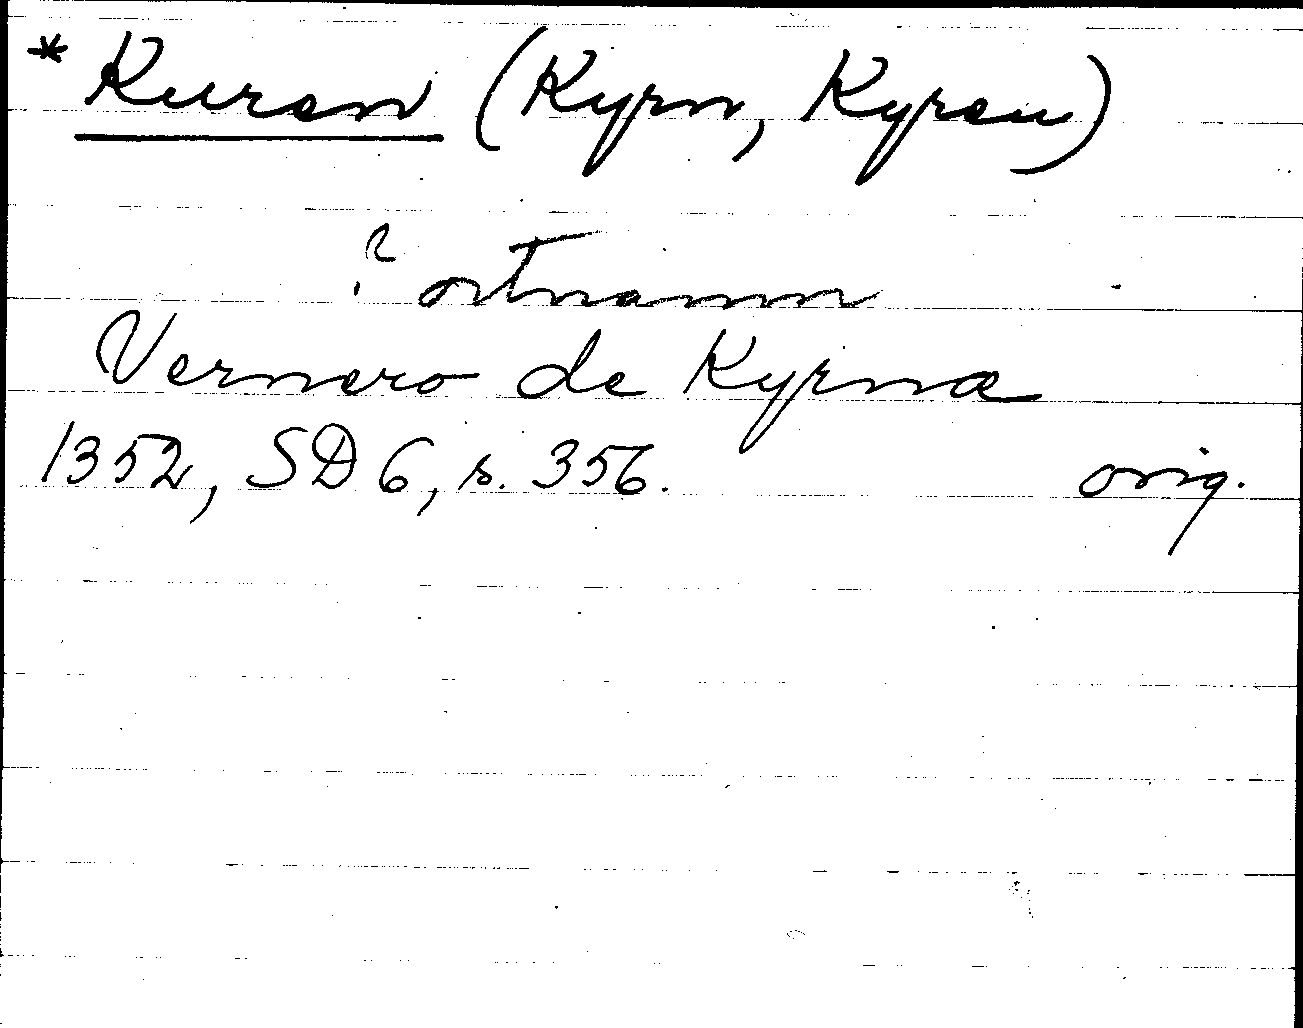 * Kuren (Kyrn, Kyren)
? ortnamn
Vernero de Kyrnæ
1352, SD 6, s. 356. orig.